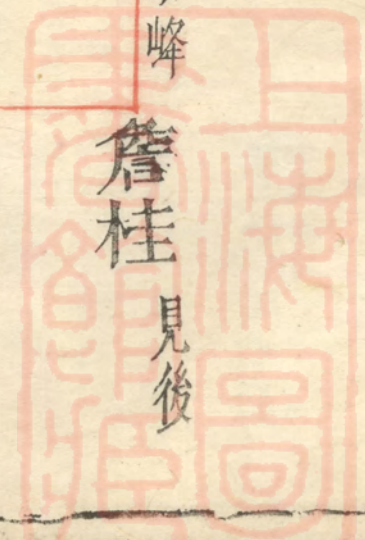 峰
詹桂 見後
上海圖
書館藏